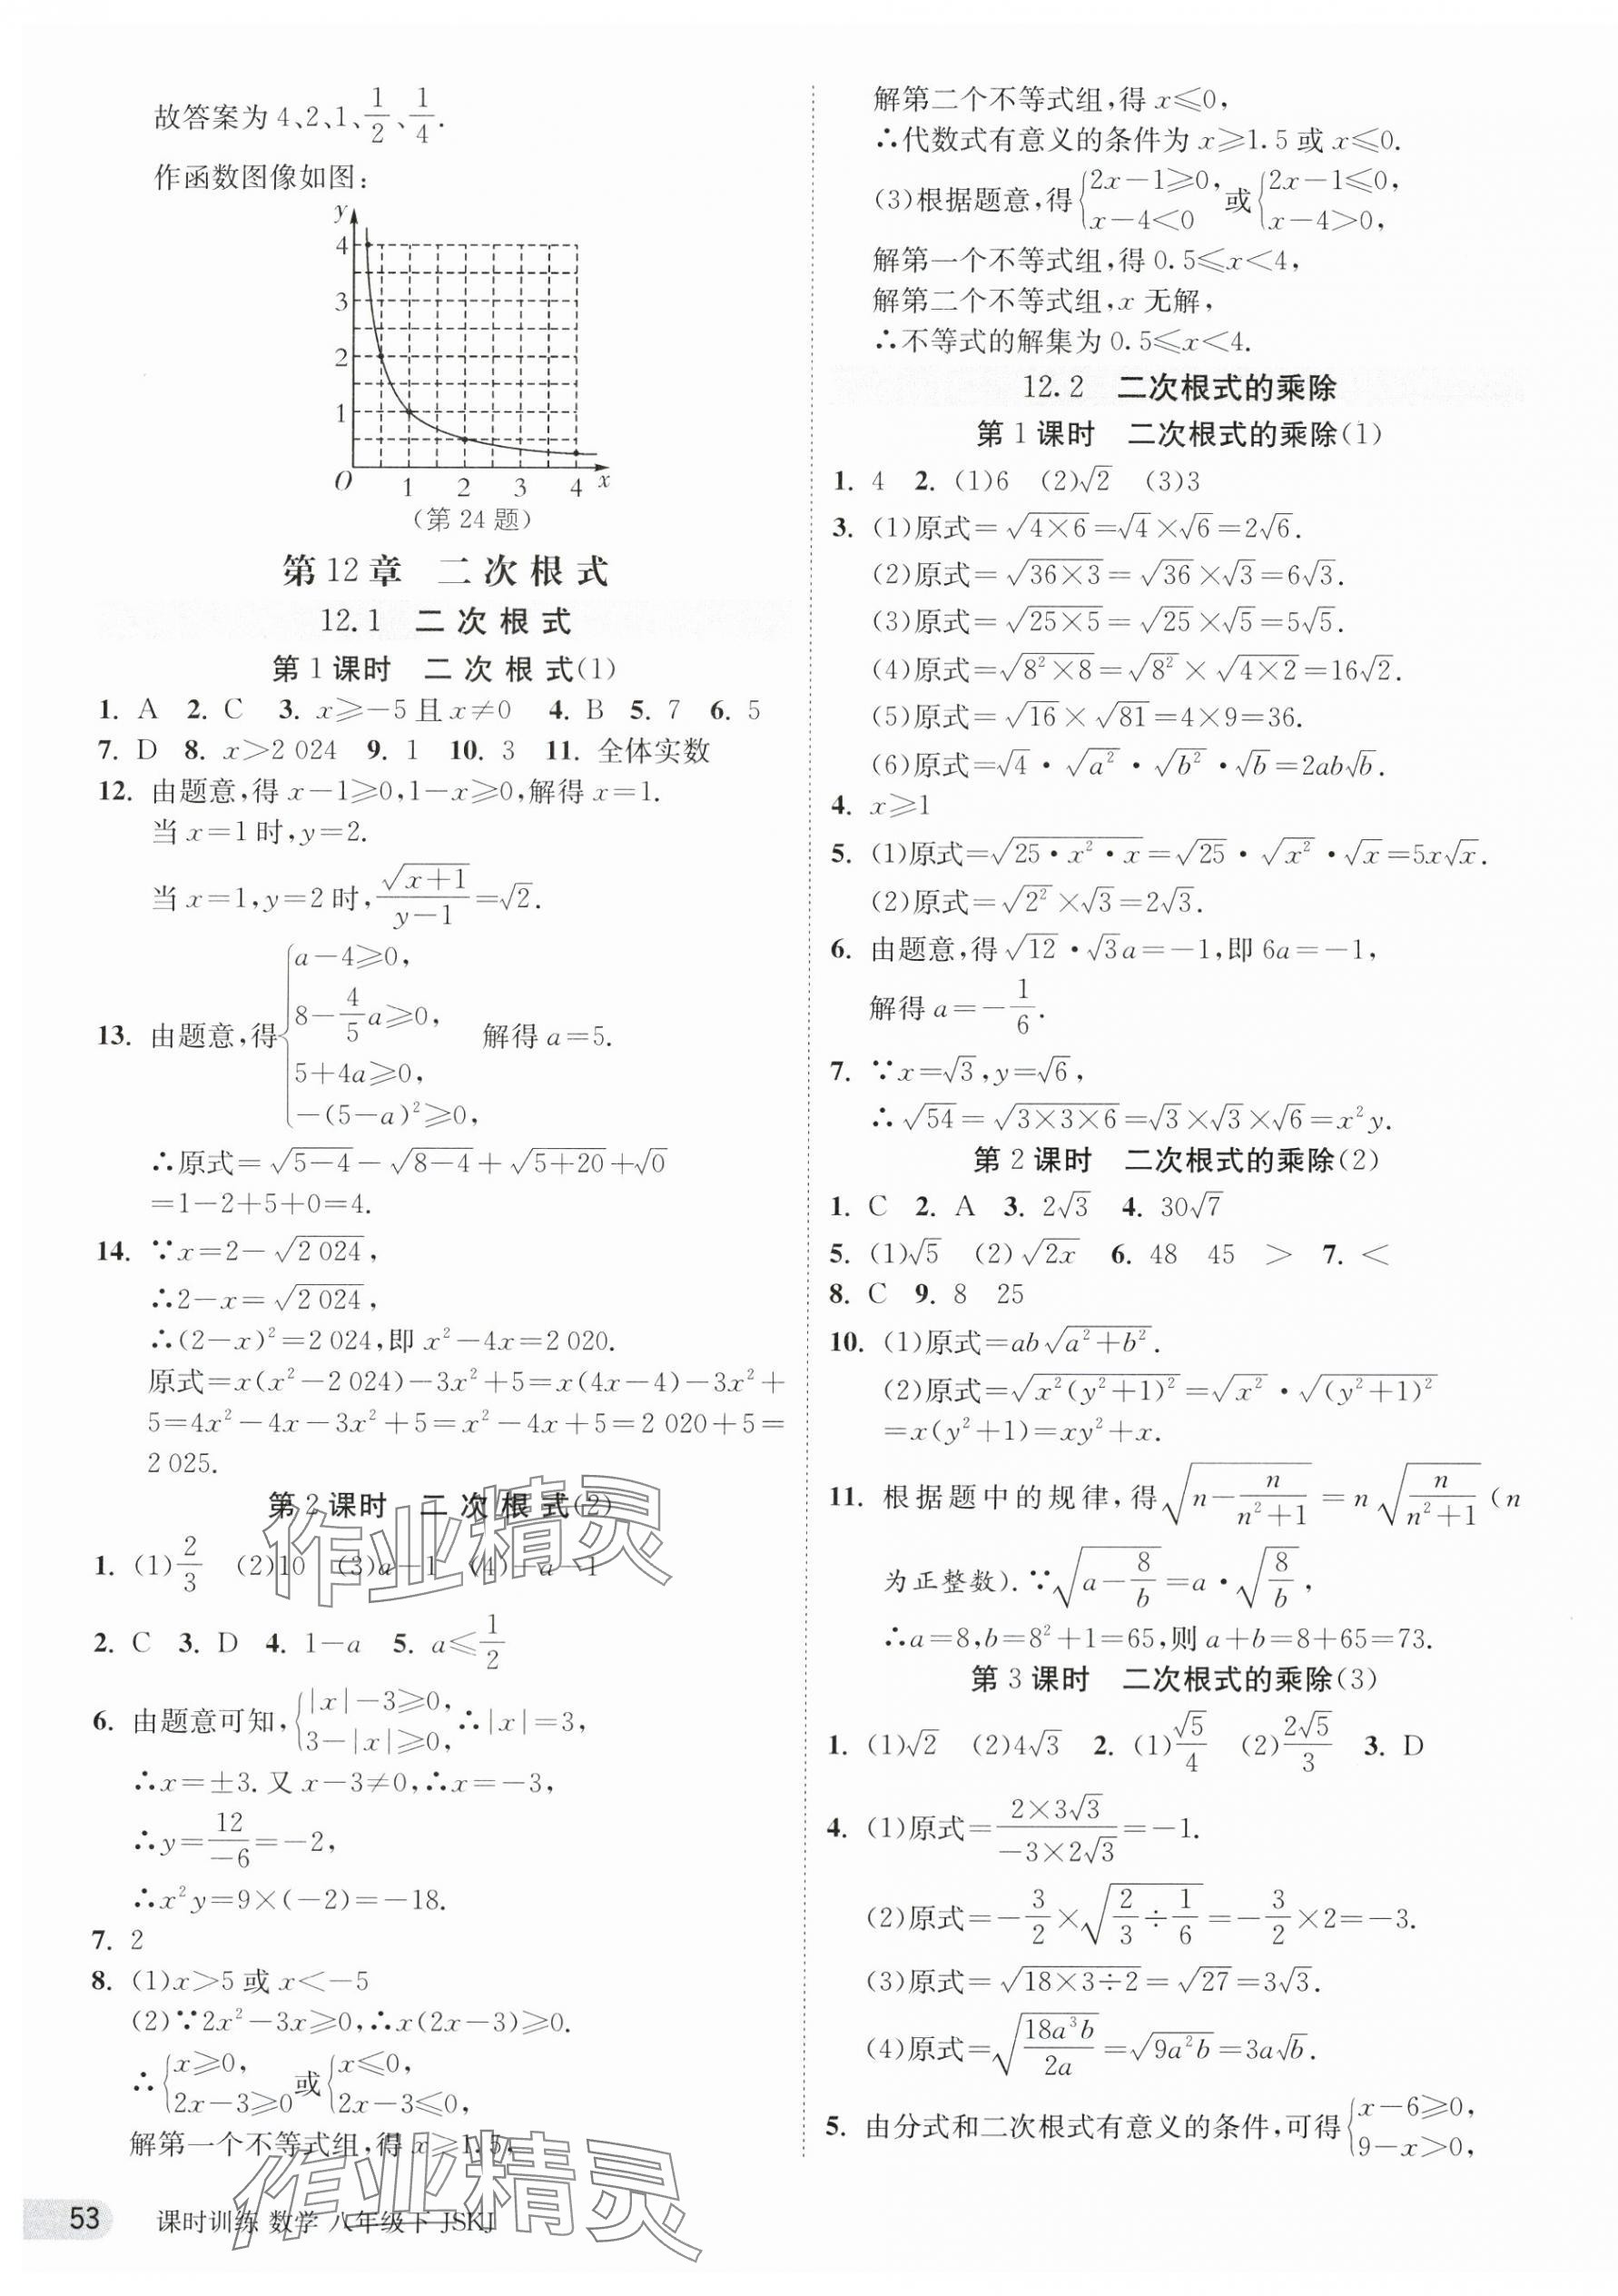 故答案为 4、2、1、1/2、1/4.
作函数图像如图：
y
4
3
2
1
O 1 2 3 4 x
(第 24 题)
第 12 章 二次根式
12.1 二次根式
第 1 课时 二次根式(1)
1. A 2. C 3. x≥−5 且 x≠0 4. B 5. 7 6. 5
7. D 8. x>2 024 9. 1 10. 3 11. 全体实数
12. 由题意,得 x−1≥0,1−x≥0,解得 x=1.
当 x=1 时,y=2.
当 x=1,y=2 时,√(x+1)/(y−1)=√2.
13. 由题意,得{a−4≥0, 8−4/5 a≥0, 5+4a≥0, −(5−a)²≥0, 解得 a=5.
∴原式=√(5−4)−√(8−4)+√(5+20)+√0
=1−2+5+0=4.
14. ∵x=2−√(2 024),
∴2−x=√(2 024),
∴(2−x)²=2 024,即 x²−4x=2 020.
原式=x(x²−2 024)−3x²+5=x(4x−4)−3x²+
5=4x²−4x−3x²+5=x²−4x+5=2 020+5=
2 025.
第 2 课时 二次根式(2)
1. (1)2/3 (2)10 (3)a−1 (4)−a−1
2. C 3. D 4. 1−a 5. a≤1/2
6. 由题意可知,{|x|−3≥0, 3−|x|≥0, ∴|x|=3,
∴x=±3. 又 x−3≠0,∴x=−3,
∴y=12/−6=−2,
∴x²y=9×(−2)=−18.
7. 2
8. (1)x>5 或 x<−5
(2)∵2x²−3x≥0,∴x(2x−3)≥0.
∴{x≥0, 2x−3≥0 或{x≤0, 2x−3≤0,
解第一个不等式组,得 x≥1.5,
53 课时训练 数学 八年级下 JSKJ
解第二个不等式组,得 x≤0,
∴代数式有意义的条件为 x≥1.5 或 x≤0.
(3)根据题意,得{2x−1≥0, x−4<0 或{2x−1≤0, x−4>0,
解第一个不等式组,得 0.5≤x<4,
解第二个不等式组,x 无解,
∴不等式的解集为 0.5≤x<4.
12.2 二次根式的乘除
第 1 课时 二次根式的乘除(1)
1. 4 2. (1)6 (2)√2 (3)3
3. (1)原式=√(4×6)=√4×√6=2√6.
(2)原式=√(36×3)=√36×√3=6√3.
(3)原式=√(25×5)=√25×√5=5√5.
(4)原式=√(8²×8)=√(8²)×√(4×2)=16√2.
(5)原式=√16×√81=4×9=36.
(6)原式=√4·√(a²)·√(b²)·√b=2ab√b.
4. x≥1
5. (1)原式=√(25·x²·x)=√25·√(x²)·√x=5x√x.
(2)原式=√(2²)×√3=2√3.
6. 由题意,得 √12·√3a=−1,即 6a=−1,
解得 a=−1/6.
7. ∵x=√3,y=√6,
∴√54=√(3×3×6)=√3×√3×√6=x²y.
第 2 课时 二次根式的乘除(2)
1. C 2. A 3. 2√3 4. 30√7
5. (1)√5 (2)√(2x) 6. 48 45 > 7. <
8. C 9. 8 25
10. (1)原式=ab√(a²+b²).
(2)原式=√(x²(y²+1)²)=√(x²)·√((y²+1)²)
=x(y²+1)=xy²+x.
11. 根据题中的规律,得√(n−n/(n²+1))=n√(n/(n²+1))(n
为正整数).∵√(a−8/b)=a·√(8/b),
∴a=8,b=8²+1=65,则 a+b=8+65=73.
第 3 课时 二次根式的乘除(3)
1. (1)√2 (2)4√3 2. (1)√5/4 (2)2√5/3 3. D
4. (1)原式=2×3√3/(−3×2√3)=−1.
(2)原式=−3/2×√(2/3÷1/6)=−3/2×2=−3.
(3)原式=√(18×3÷2)=√27=3√3.
(4)原式=√(18a³b/2a)=√(9a²b)=3a√b.
5. 由分式和二次根式有意义的条件,可得{x−6≥0, 9−x>0,
作业精灵
作业精灵